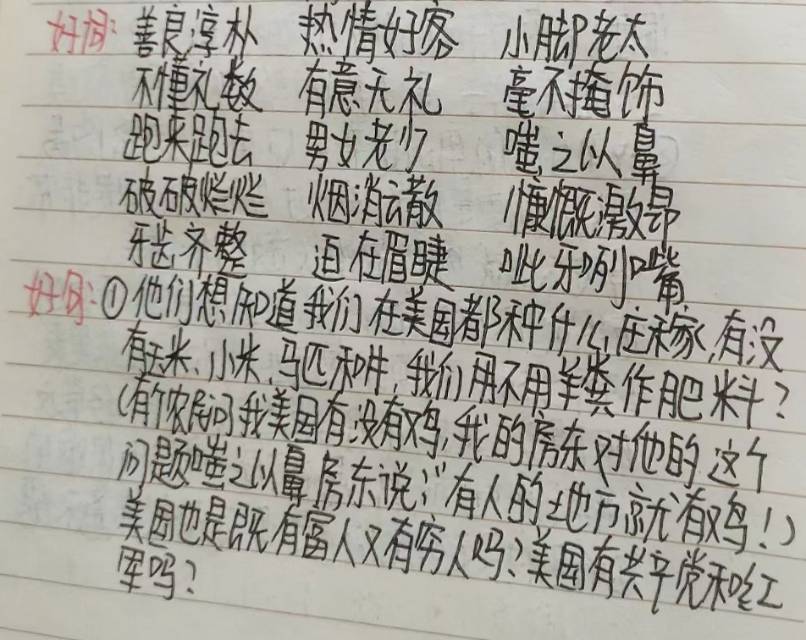 好词: 善良淳朴 热情好客 小脚老太
不懂礼数 有意无礼 毫不掩饰
跑来跑去 男女老少 嗤之以鼻
破破烂烂 烟消云散 慷慨激昂
牙齿齐整 迫在眉睫 呲牙咧嘴
好句: ①他们想知道我们在美国都种什么庄稼,有没
有玉米、小米、马匹和牛,我们用不用羊粪作肥料?
(有个农民问我美国有没有鸡,我的房东对他的这个
问题嗤之以鼻房东说:“有人的地方就有鸡!)
美国也是既有富人又有穷人吗?美国有共产党和红
军吗?